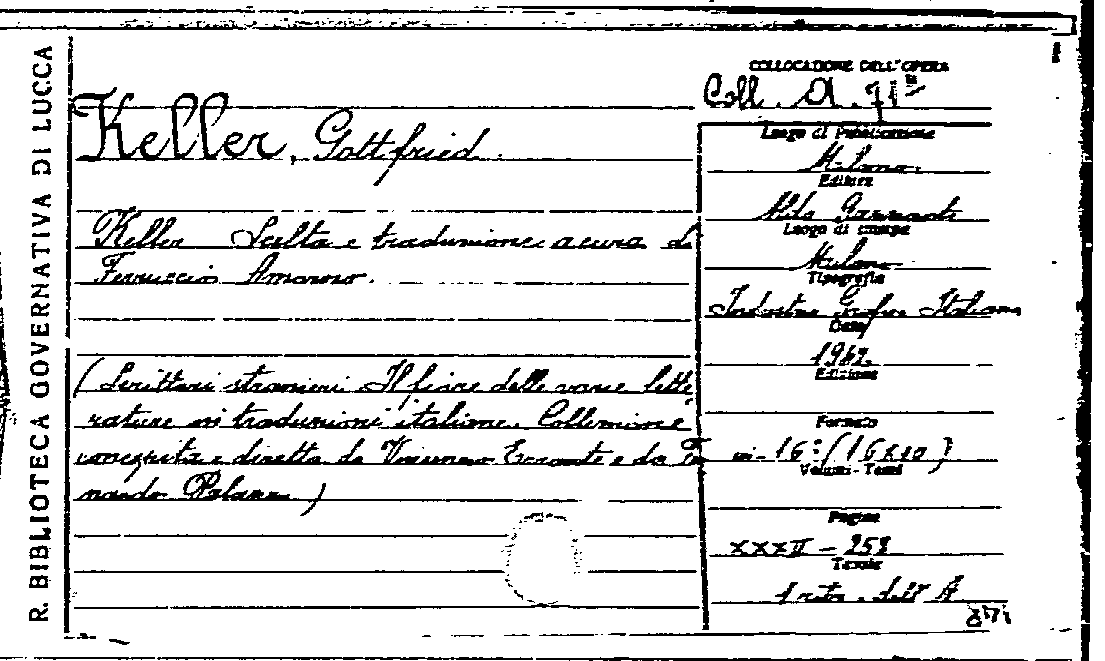 R. BIBLIOTECA GOVERNATIVA DI LUCCA
Keller, Gottfried.
Keller Scelta e traduzione a cura di
Ferruccio Amoroso.
(Scrittori stranieri Il fiore delle varie lette
rature in traduzioni italiane. Collezione
concepita e diretta da Vincenzo Errante e da Fer
nando Palazzi)
COLLOCAZIONE DELL'OPERA
Coll. A. 71
Luogo di Pubblicazione
Milano.
Editore
Aldo Garzanti
Luogo di stampa
Milano
Tipografia
Industrie Grafiche Italiane
Data
1942.
Edizione
Formato
in-16:(16x10)
Volumi - Tomi
Pagine
XXXII - 258
Tavole
1 ritr. dell'A